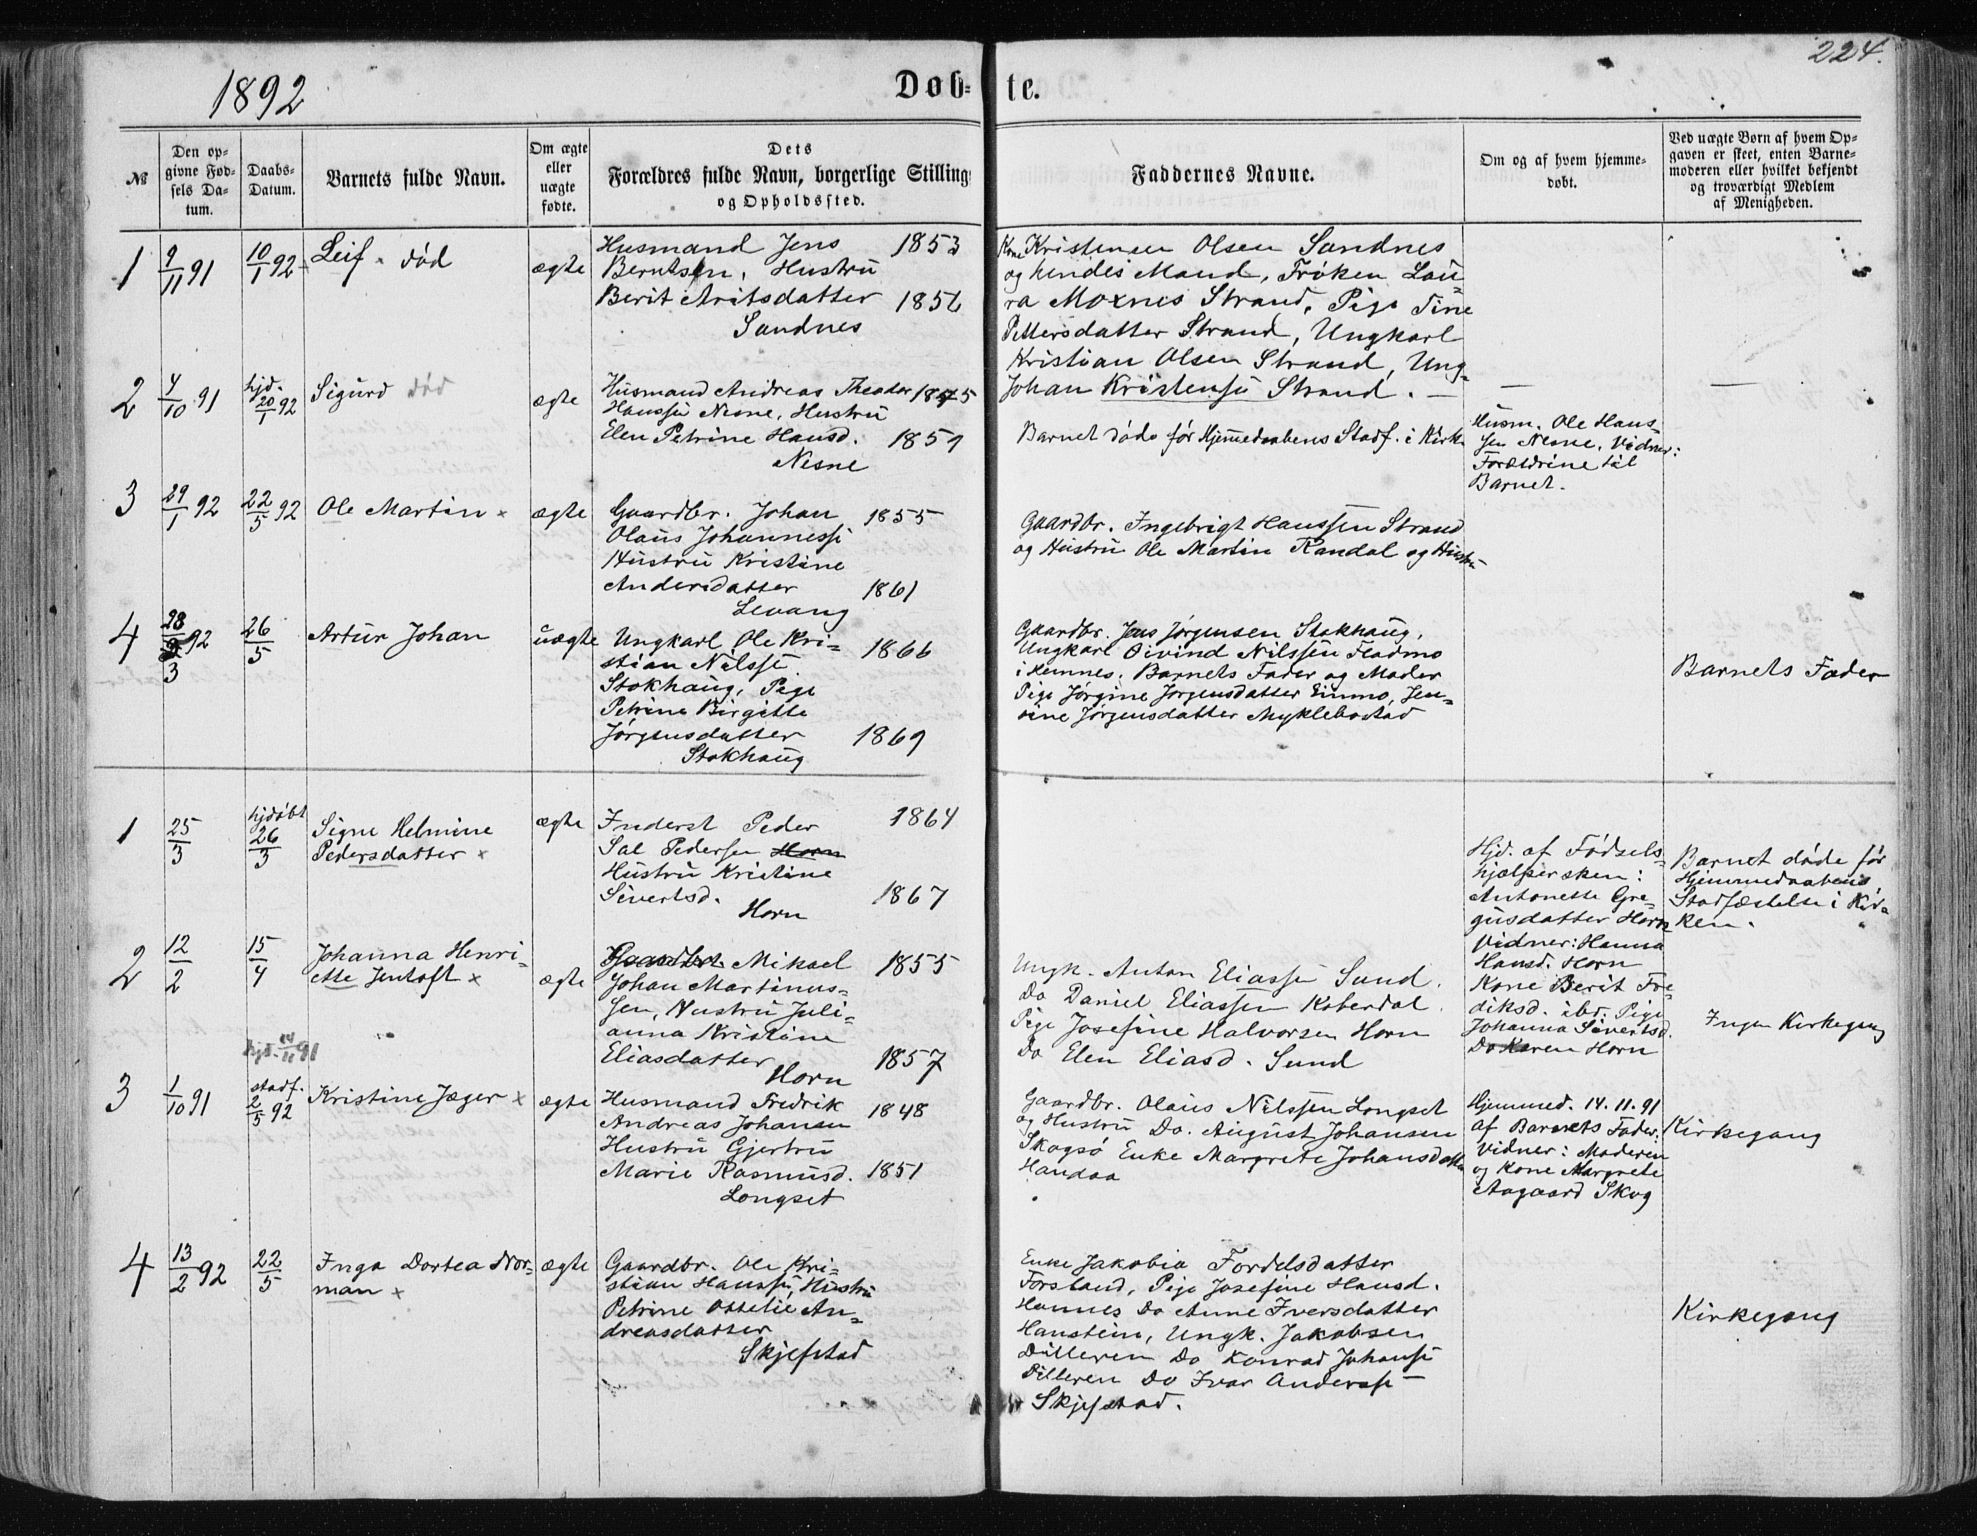 224.
1892
Døb-
te.
№
Den op-
givne Fød-
sels Da-
tum.
Daabs-
Datum.
Barnets fulde Navn.
Om ægte
eller
uægte
fødte.
Dets
Forældres fulde Navn, borgerlige Stilling
og Opholdssted.
Faddernes Navne.
Om og af hvem hjemme-
døbt.
Ved uægte Børn af hvem Op-
gaven er skeet, enten Barne-
moderen eller hvilket bekjendt
og troværdigt Medlem
af Menigheden.
1
9/11 91
10/1 92
Leif død
ægte
Husmand Jens 1853
Berntsen, Hustru
Berit Aritsdatter 1856
Sandnes
Kone Kristense Olsen Sandnes
og hendes Mand, Frøken Lau-
ra Moxnes Strand, Pige Tine
Pettersdatter Strand, Ungkarl
Kristian Olsen Strand, Ung-
Johan Kristensen Strand. —
2
4/10 91
hjd.
20/1 92
Sigurd død
ægte
Husmand Andreas Theodor 1845
Hanssen Nesne, Hustru
Elen Petrine Hansd. 1857
Nesne
Barnet døde før Hjemmedaabens Stadf. i Kirk.
—
Husm. Ole Hans-
sen Nesne. Vidner:
Forældrene til
Barnet.
—
3
29/1 92
22/5 92
Ole Martin ×
ægte
Gaardbr. Johan 1855
Olaus Johannessen
Hustru Kristine
Andersdatter 1861
Levang
Gaardbr. Ingebrigt Hanssen Strand
og Hustru Ole Martin Randal og Hustru
4
28/3 92
26/5
Artur Johan
uægte
Ungkarl Ole Kri- 1866
stian Nilssen
Stokhaug, Pige
Petrine Birgitte
Jørgensdatter 1869
Stokhaug
Gaardbr. Jens Jørgensen Stokhaug,
Ungkarl Øivind Nilssen Fladmo
i Hemnes, Barnets Fader og Moder
Pige Jørgine Jørgensdatter Einmo, Jen-
sine Jørgensdatter Myklebostad
Barnets Fader
1
25/3
hjdøbt
26/3
Signe Helmine
Pedersdatter ×
ægte
Inderst Peder 1864
Sal Pedersen Horn
Hustru Kristine
Sivertsd. 1867
Horn
Hjd. af Fødsels-
hjælpersken:
Antonette Gre-
gusdatter Horn
Vidner: Hanna
Hansd. Horn
Kone Berit Fre-
diksd. ibd. Pige
Johanna Sivertsd.
Do Karen Horn
Barnet døde før
Hjemmedaabens
Stadfæstelse i Kir-
ken.
2
12/2
15/4
Johanna Henri-
ette Jentoft ×
ægte
Gaardbr. Mikael 1855
Johan Martinus-
sen, Hustru Juli-
anna Kristine
Eliasdatter 1857
Horn
Ungk. Anton Eliassen Sund.
Do Daniel Eliassen Koberdal.
Pige Josefine Halvorsen Horn
Do Elen Eliasd. Sund
Ingen Kirkegang
3
1/10 91
hjd. 14/11 91
stadf.
2/5 92
Kristine Jæger ×
ægte
Husmand Fredrik 1848
Andreas Johansen
Hustru Gjertru
Marie Rasmusd. 1851
Longset
Gaardbr. Olaus Nilssen Longset
og Hustru Do. August Johansen
Skogsø Enke Margrete Johansdatter
Handaa
Hjemmed. 14.11.91
af Barnets Fader.
Vidner: Moderen
og Kone Margrete
Aagaard Skog
Kirkegang
4
13/2 92
22/5
Inga Dortea Nor-
man ×
ægte
Gaardbr. Ole Kri-
stian Hanssen, Hustru
Petrine Ottelie An-
dreasdatter
Skjefstad
Enke Jakobia Fordelsdatter
Forsland, Pige Josefine Hansd.
Hannes Do Anne Iversdatter
Hanstein, Ungk. Jakobsen
Dilleren Do Konrad Johansen
Dilleren Do Ivar Anderssen
Skjefstad.
Kirkegang